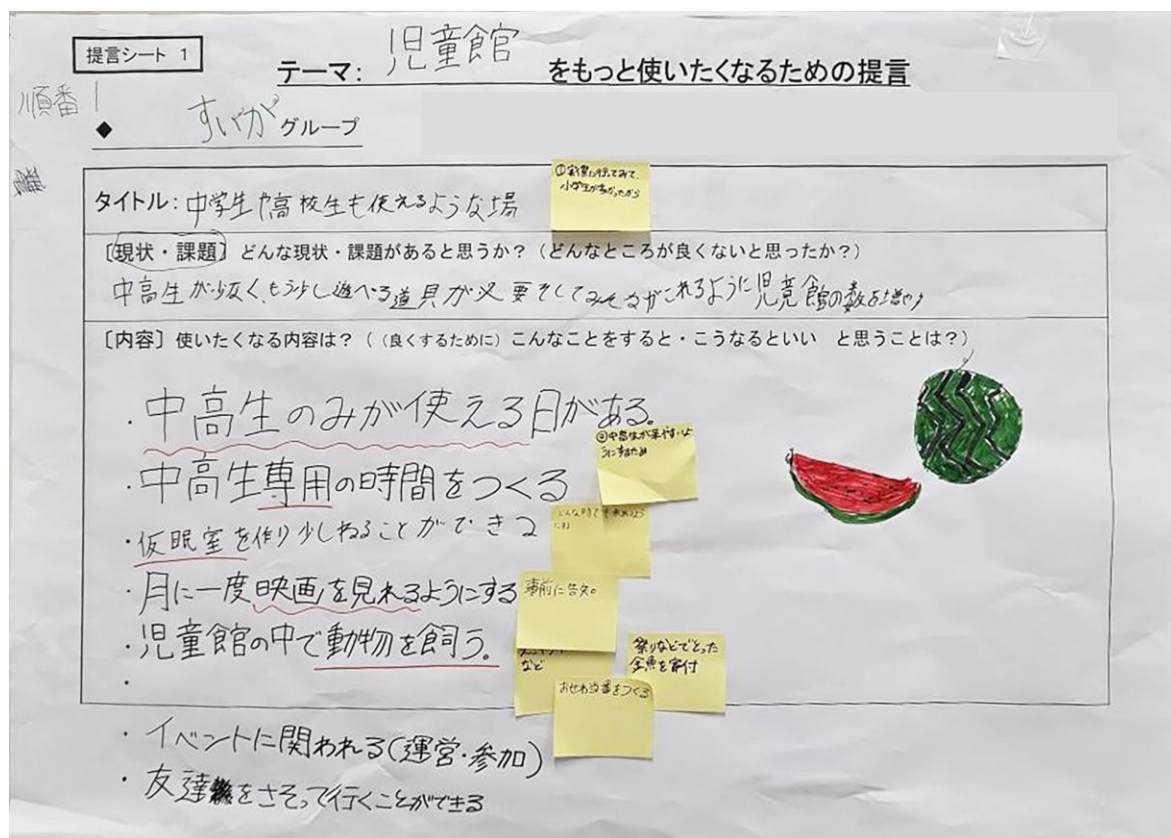 提言シート 1
テーマ: 児童館 をもっと使いたくなるための提言
順番 1
◆ すいか グループ
①実際に行ってみて、
小学生が多かったから
タイトル: 中学生や高校生も使えるような場
[現状・課題] どんな現状・課題があると思うか? (どんなところが良くないと思ったか?)
中高生が少なく、もう少し遊べる道具が必要そしてみんながこれるように児童館の数を増やす
[内容] 使いたくなる内容は? ((良くするために) こんなことをすると・こうなるといい と思うことは?)
・中高生のみが使える日がある。
②中高生が来やすいよ
うにするため
・中高生専用の時間をつくる
・仮眠室を作り少しねることができる
・月に一度映画を見れるようにする
事前に告知。
・児童館の中で動物を飼う。
など
祭りなどでとった
金魚を寄付
おせわ当番をつくる
・
・イベントに関われる(運営・参加)
・友達をさそって行くことができる